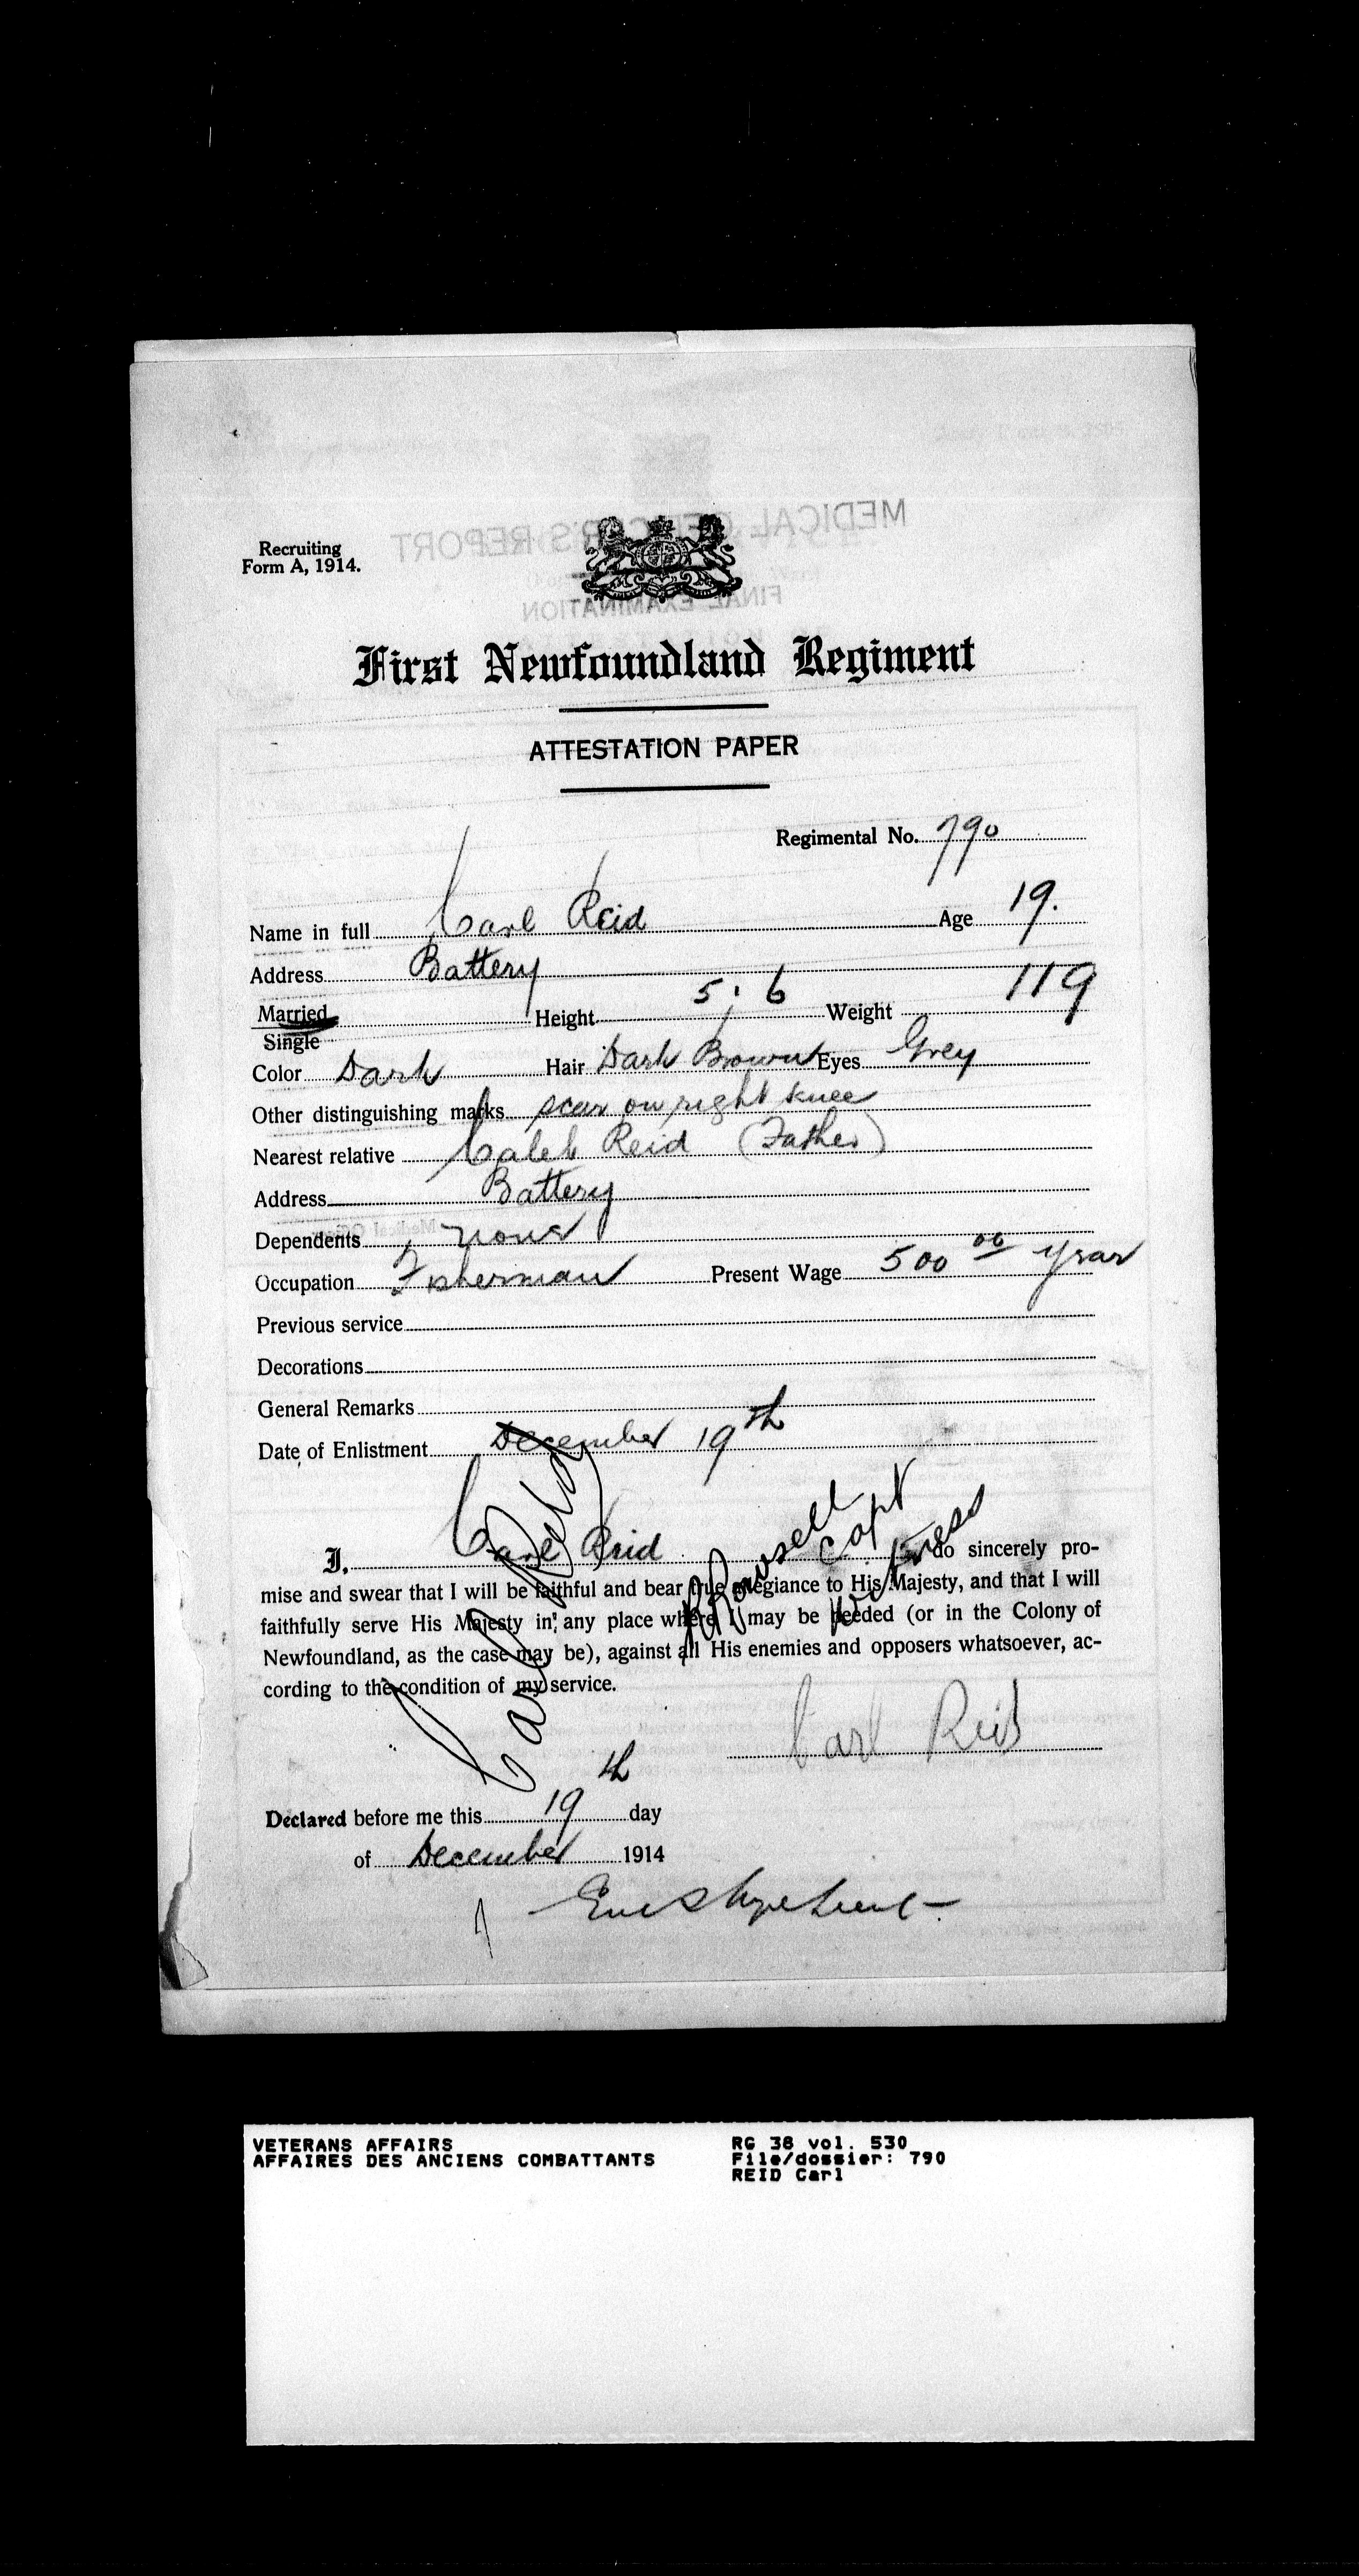 MEDICAL OFFICER'S REPORT
FINAL EXAMINATION
Recruiting
Form A, 1914.
First Newfoundland Regiment
ATTESTATION PAPER
Regimental No. 790
Name in full Carl Reid Age 19.
Address Battery
Married Height 5' 6 Weight 119
Single
Color Dark Hair Dark Brown Eyes Grey
Other distinguishing marks scar on right knee
Nearest relative Caleb Reid (Father)
Address Battery
Dependents none
Occupation Fisherman Present Wage 500 00 year
Previous service
Decorations
General Remarks
Date of Enlistment December 19th
I, Carl Reid do sincerely pro-
mise and swear that I will be faithful and bear true allegiance to His Majesty, and that I will
faithfully serve His Majesty in any place where I may be needed (or in the Colony of
Newfoundland, as the case may be), against all His enemies and opposers whatsoever, ac-
cording to the condition of my service.
Carl Reid
R Rowsell
Capt
Witness
Carl Reid
Declared before me this 19th day
of December 1914
VETERANS AFFAIRS
AFFAIRES DES ANCIENS COMBATTANTS
RG 38 vol. 530
File/dossier: 790
REID Carl